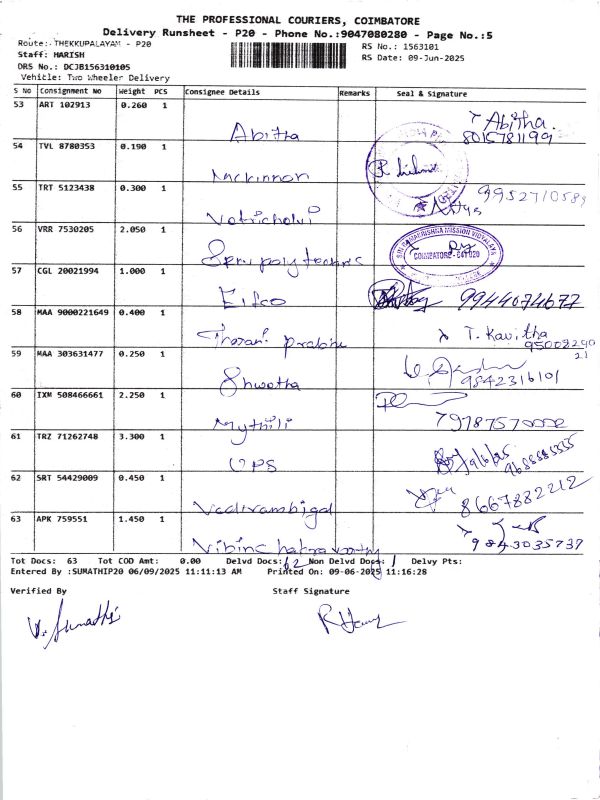 THE PROFESSIONAL COURIERS, COIMBATORE
Delivery Runsheet - P20 - Phone No.:9047080280 - Page No.:5
Route:- THEKKUPALAYAM - P20
RS No.: 1563101
Staff: HARISH
RS Date: 09-Jun-2025
DRS No.: DCJB156310105
Vehicle: Two Wheeler Delivery
S No Consignment No Weight PCS Consignee Details Remarks Seal & Signature
53 ART 102913 0.260 1 Abitha Abitha.
8015781199
54 TVL 8780353 0.190 1 Mackinnon
55 TRT 5123438 0.300 1 Vetrichelvi 9952710589
56 VRR 7530205 2.050 1 Srmv polytechnic
SRI RAMAKRISHNA MISSION VIDYALAYA
COIMBATORE - 641 020
57 CGL 20021994 1.000 1 Eifco 9944074677
58 MAA 9000221649 0.400 1 Prasan prabhu T. Kavitha
59 MAA 303631477 0.250 1 Shwetha 9842316101
60 IXM 508466661 2.250 1 Mythili
61 TRZ 71262748 3.300 1 UPS
62 SRT 54429009 0.450 1 Vadivambigai 8667882212
63 APK 759551 1.450 1 Vibin chakravarthy 9843035737
Tot Docs: 63 Tot COD Amt: 0.00 Delvd Docs: 62 Non Delvd Docs: 1 Delvy Pts:
Entered By :SUMATHIP20 06/09/2025 11:11:13 AM Printed On: 09-06-2025 11:16:28
Verified By Staff Signature
V. Sumathi